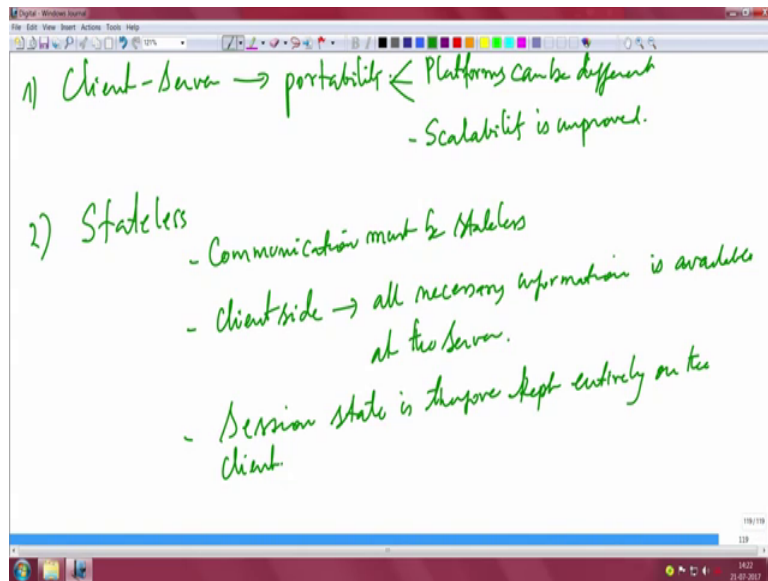 Digital - Windows Journal
File Edit View Insert Actions Tools Help
121%
1) Client-Server → portability < Platforms can be different
- Scalability is improved.
2) Stateless
- Communication must be stateless
- Client side → all necessary information is available
at the server.
- Session state is therefore kept entirely on the
client.
119/119
119
14:22
21-07-2017